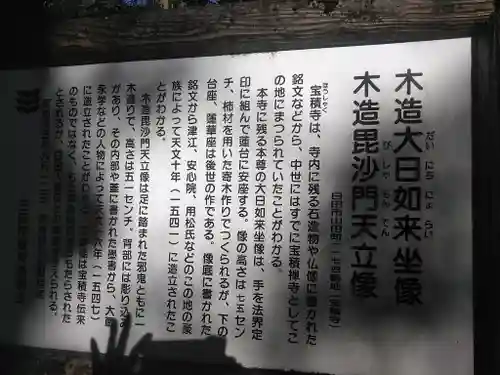 木造大日如来坐像
だいにちにょらい
木造毘沙門天立像
びしゃもんてん
日田市
宝積寺は、寺内に残る石造物や仏像に書かれた
ほうしゃく
銘文などから、中世にはすでに宝積禅寺としてこ
の地にまつられていたことがわかる
本寺に残る本尊の大日如来坐像は、手を法界定
印に組んで蓮台に安座する。像の高さは七五セン
チ、柿材を用いた寄木作りでつくられるが、下の
台座、蓮華座は後世の作である。像底に書かれた
銘文から津江、安心院、用松氏などのこの地の豪
族によって天文十年（一五四一）に造立されたこ
とがわかる。
木造毘沙門天立像は足に踏まれた邪鬼ともに一
木造りで、高さは五一センチ、背部には彫り込み
があり、その内部や蓋に書かれた墨書から、大
永学などの人物によって天文十六年（一五四七）
に造立されたことがわ
は宝積寺伝来
のものではなく、も
もたらされた
とされるが、
えられる。